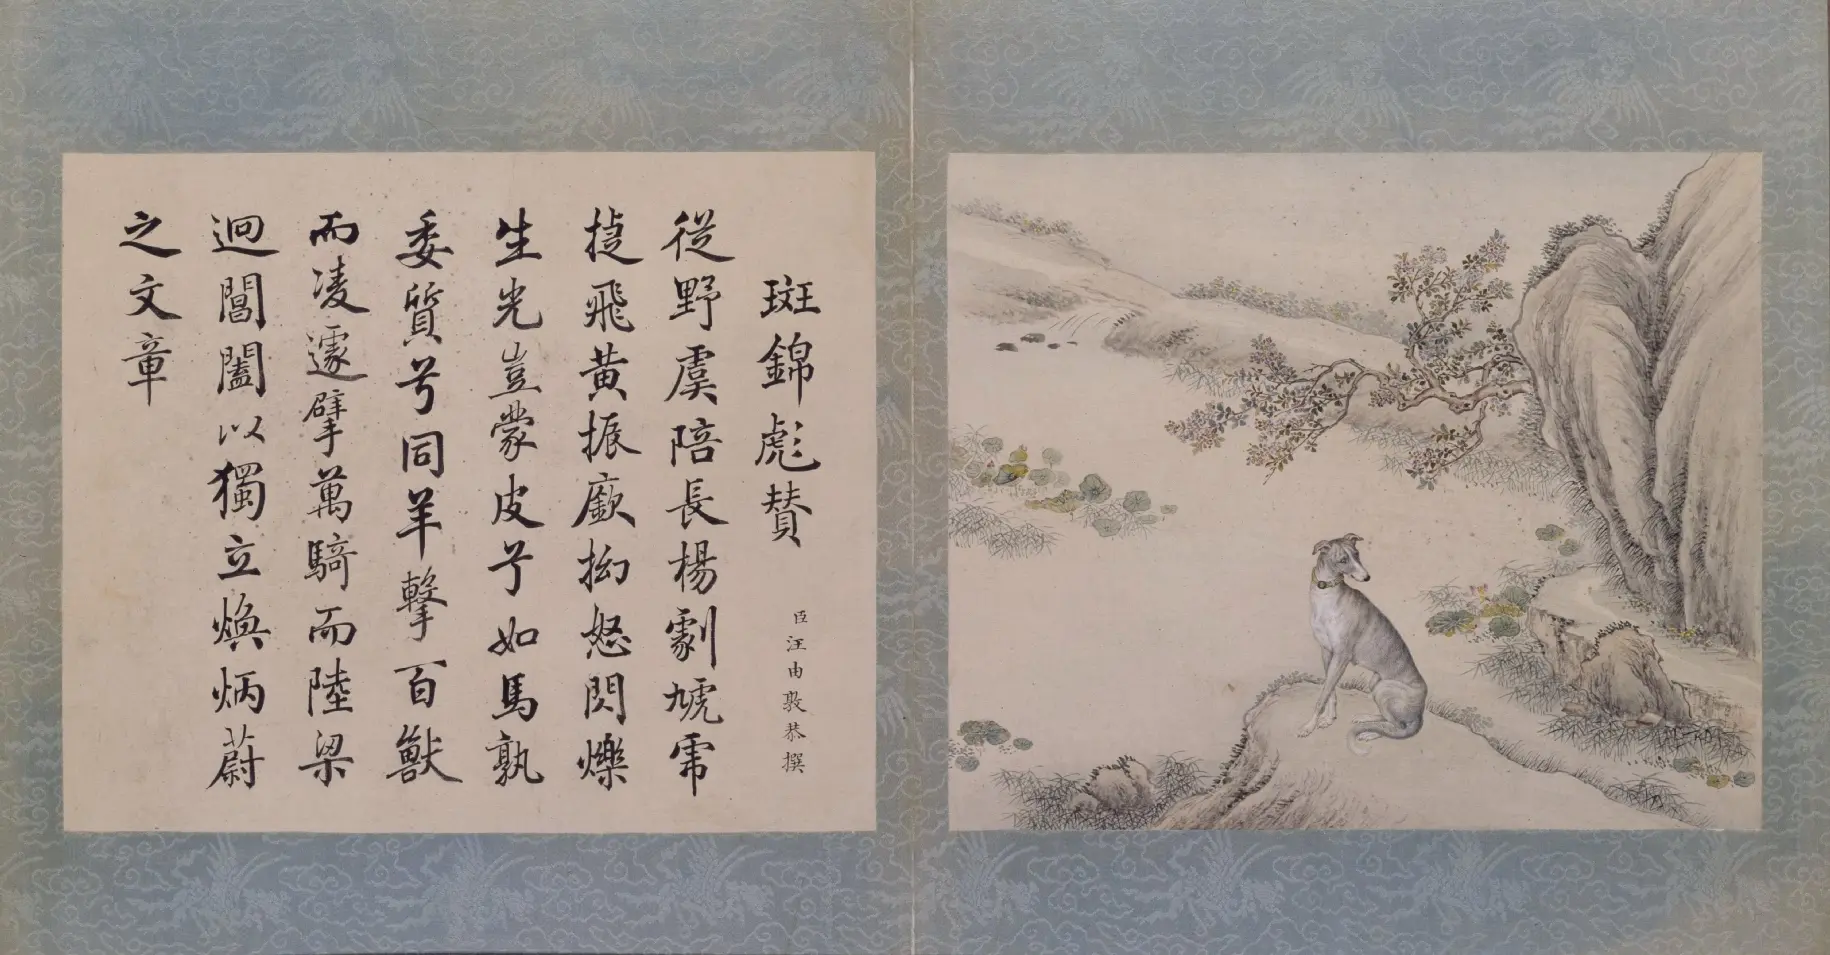 斑錦彪賛
臣汪由敦恭撰
從野虞陪長楊劇虓乕
捷飛黃振厥拗怒閃爍
生光豈蒙皮兮如馬孰
委質兮同羊擊百獸
而凌遽擘萬騎而陸梁
迴閶闔以獨立煥炳蔚
之文章